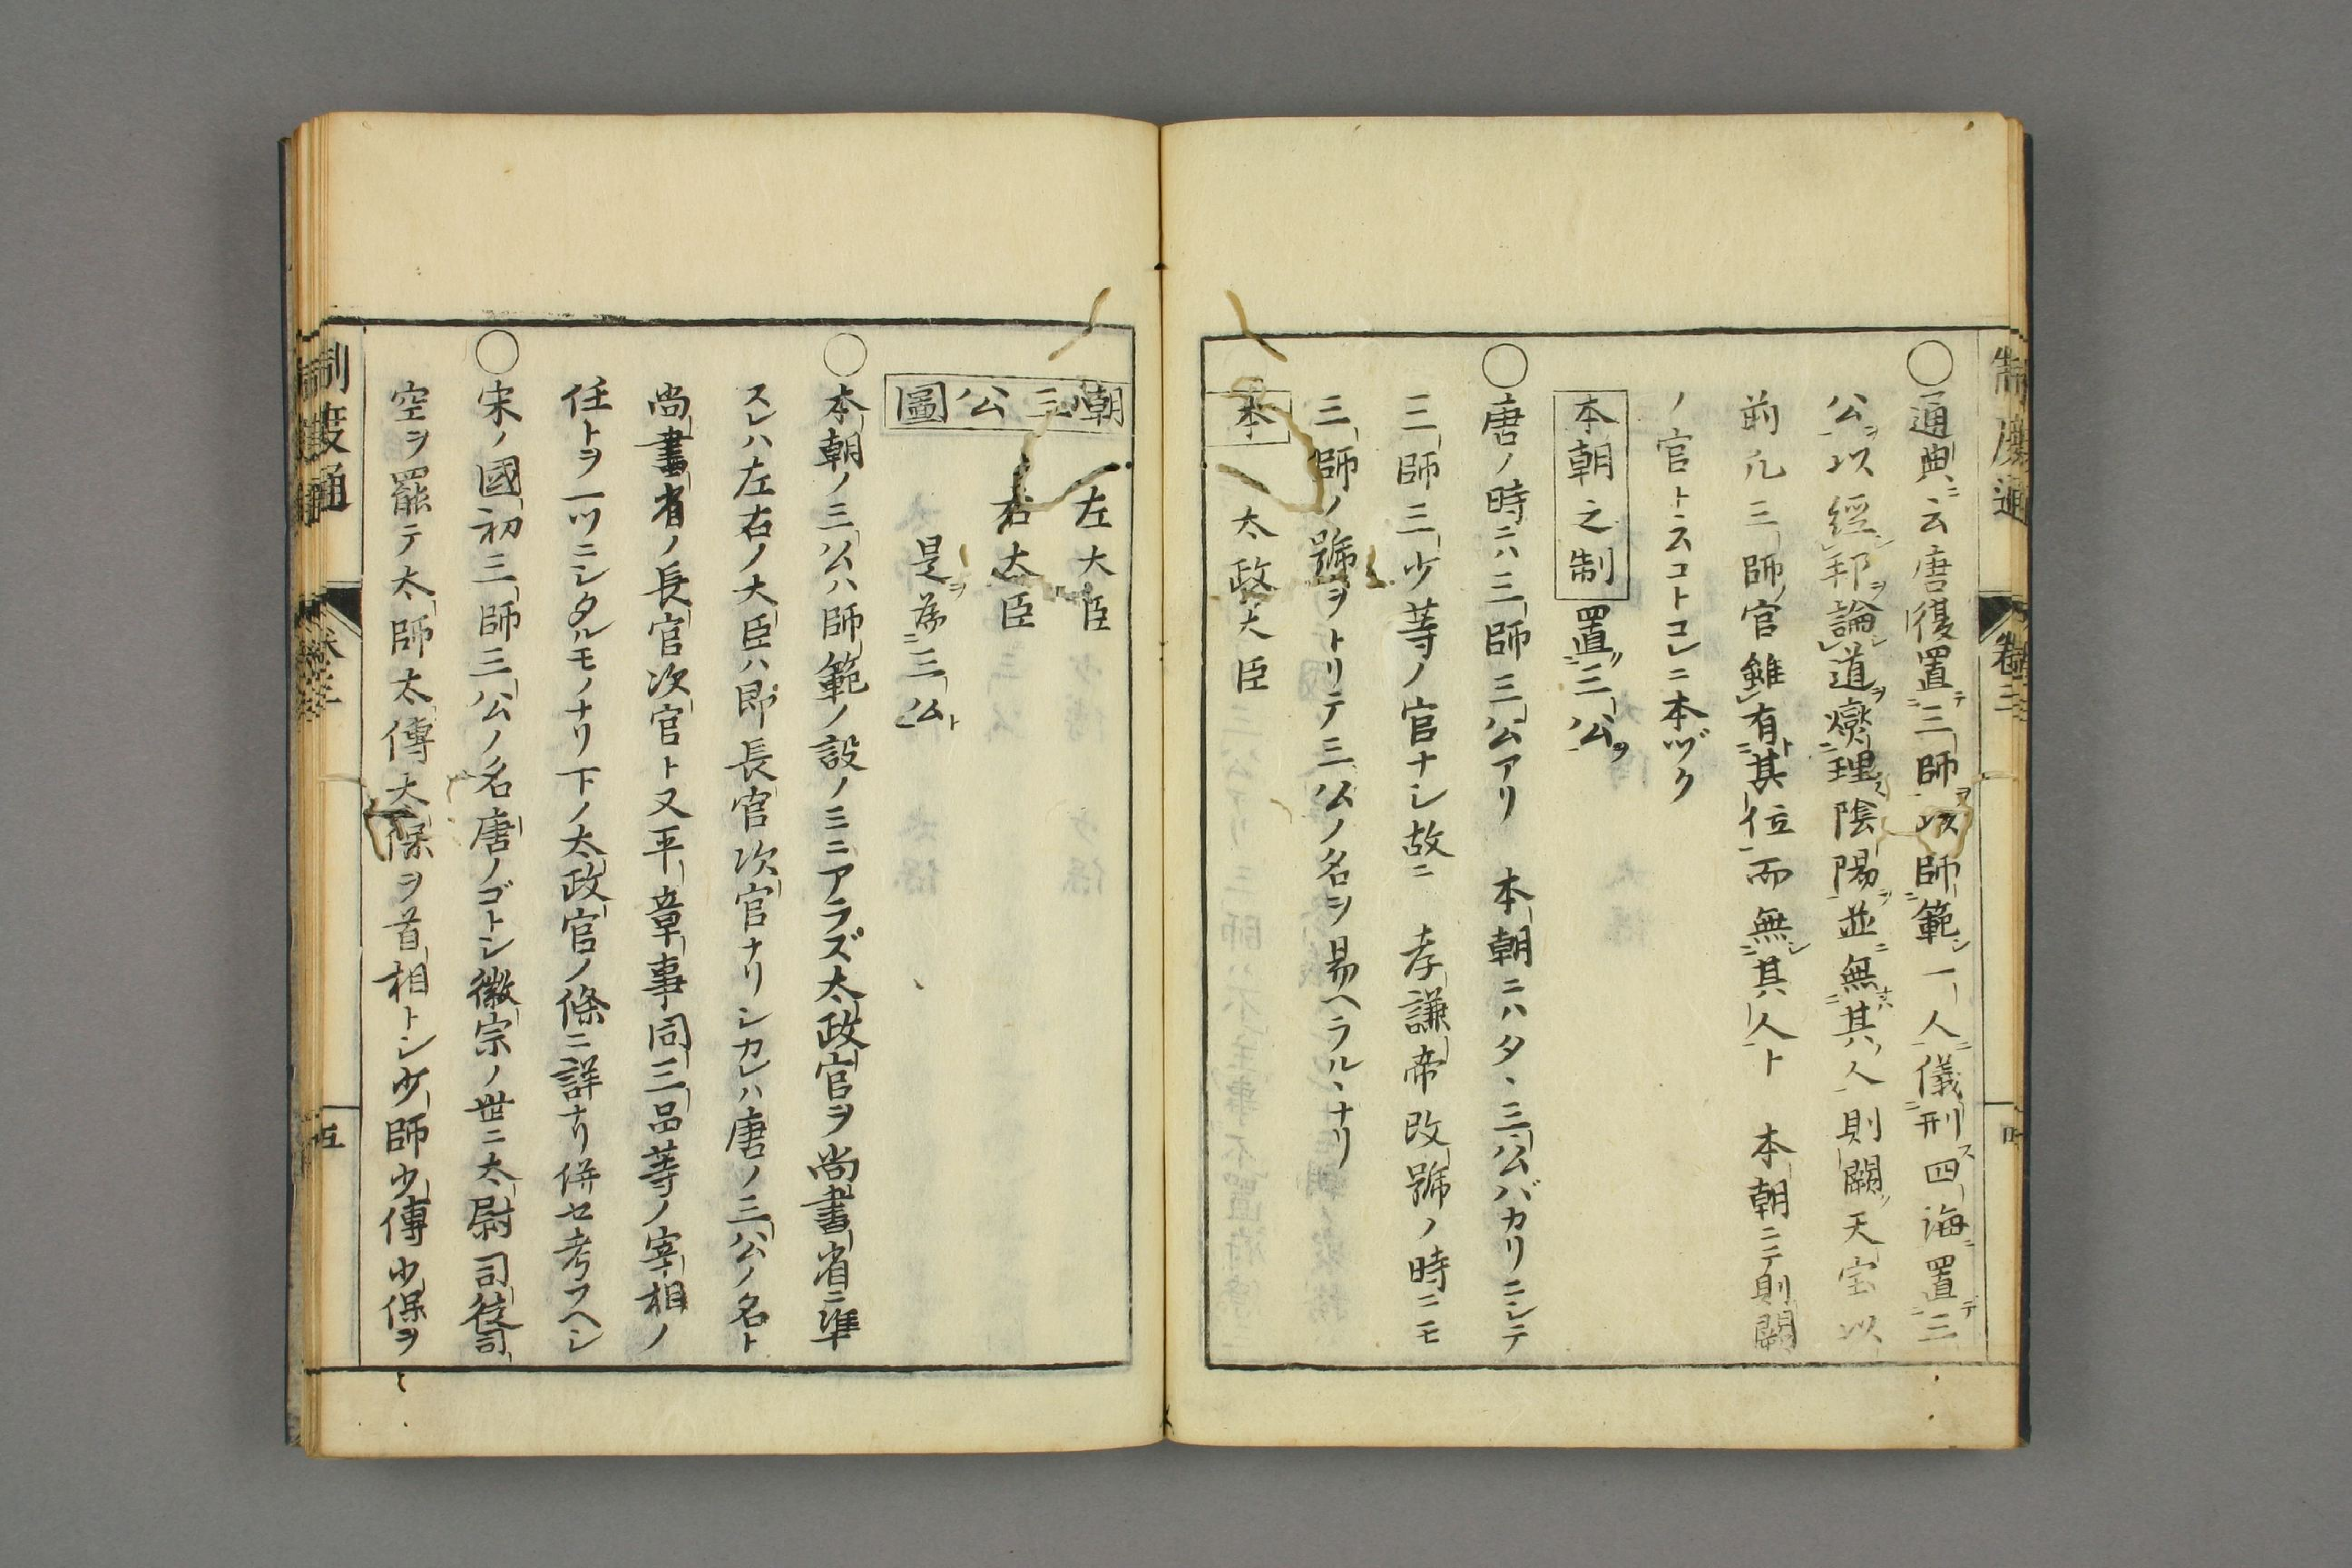 制度通 卷三
○通典ニ云唐復置テ三師ヲ以師範シ一人ニ儀刑ス四海ニ置テ三
公ヲ以經シ邦ヲ論シ道ヲ燮理ス陰陽ヲ並ニ無キハ其人則闕ク天宝以
前凢三師官雖有ト其位而無シ其人ト 本朝ニテ則闕
ノ官ト云コトコレニ本ヅク
本朝之制 置三公ヲ
○唐ノ時ニハ三師三公アリ 本朝ニハタヽ三公バカリニシテ
三師三少等ノ官ナシ故ニ 孝謙帝改號ノ時ニモ
三師ノ號ヲトリテ三公ノ名ヲ易ヘラルヽナリ
本 太政大臣
朝三公圖 左大臣
右大臣
是ヲ為三公ト
○本朝ノ三公ハ師範ノ設ノミニアラズ太政官ヲ尚書省ニ準
スレハ左右ノ大臣ハ即長官次官ナリシカレハ唐ノ三公ノ名ト
尚書省ノ長官次官ト又平章事同三品等ノ宰相ノ
任トヲ一ツニシタルモノナリ下ノ太政官ノ條ニ詳ナリ併セ考フヘシ
○宋ノ國初三師三公ノ名唐ノゴトシ徽宗ノ世ニ太尉司徒司
空ヲ罷テ太師太傳太保ヲ首相トシ少師少傳少保ヲ
制度通 卷三 五